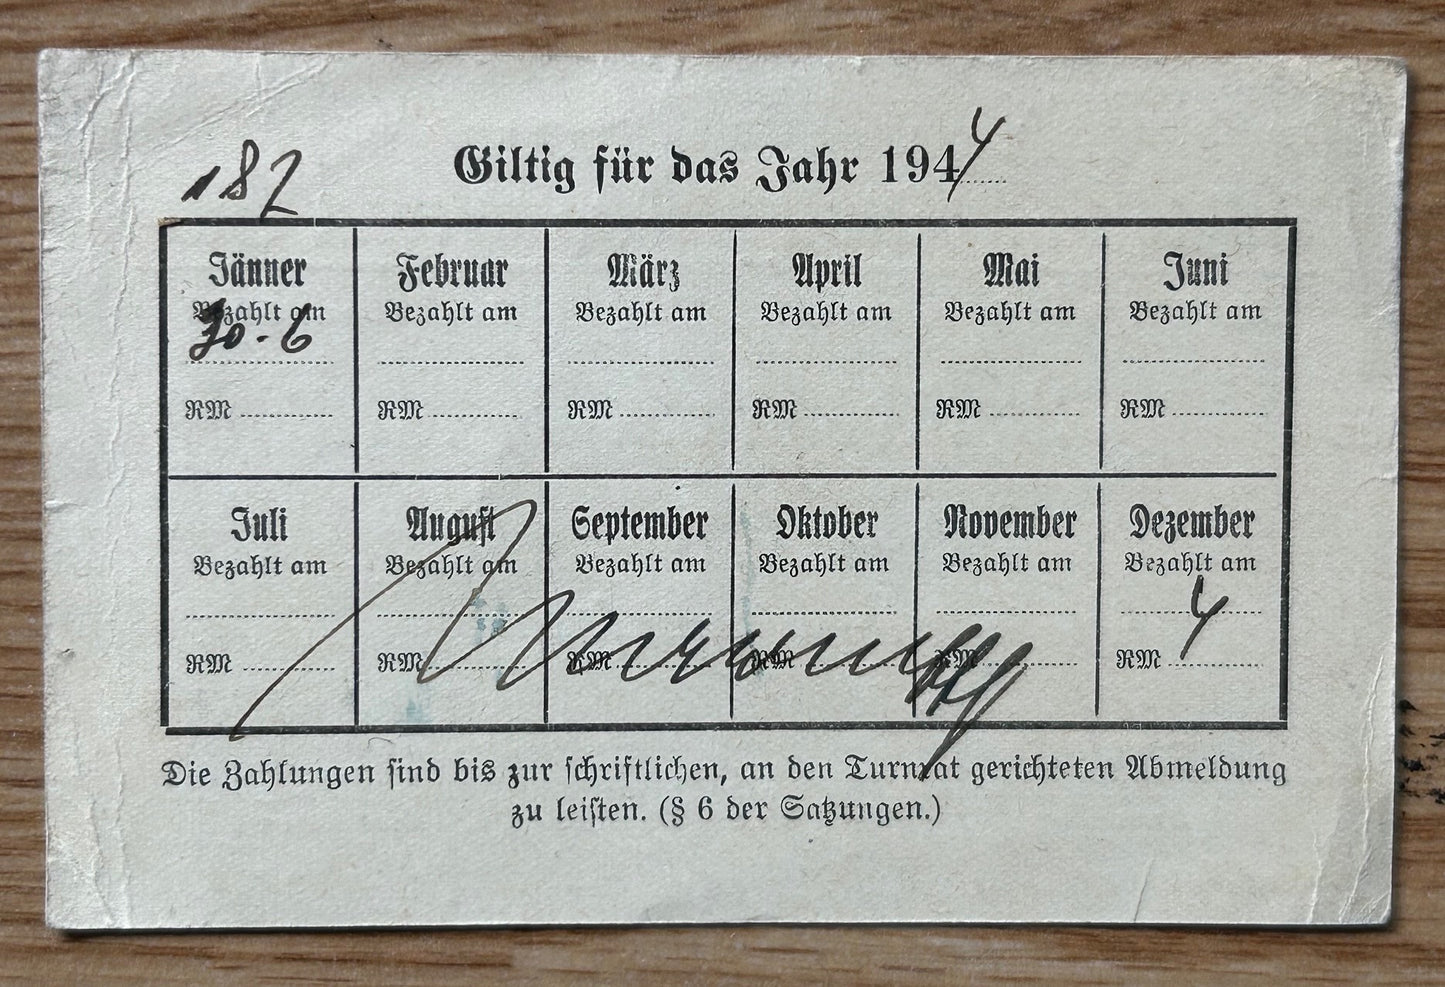 182
Giltig für das Jahr 1944
Jänner Februar März April Mai Juni
Bezahlt am Bezahlt am Bezahlt am Bezahlt am Bezahlt am Bezahlt am
30.6
RM RM RM RM RM RM
Juli August September Oktober November Dezember
Bezahlt am Bezahlt am Bezahlt am Bezahlt am Bezahlt am Bezahlt am
4
RM RM RM RM RM RM
Die Zahlungen sind bis zur schriftlichen, an den Turnrat gerichteten Abmeldung
zu leisten. (§ 6 der Satzungen.)